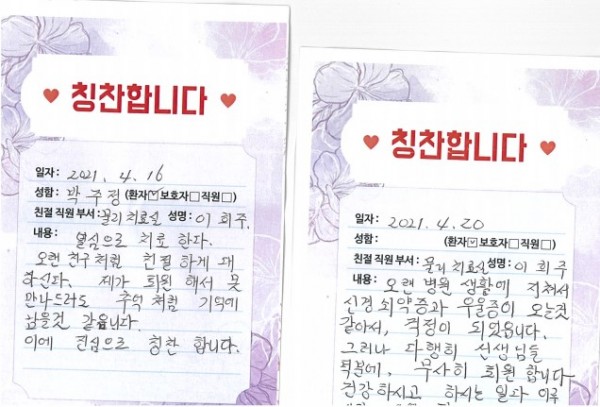 칭찬합니다
일자: 2021. 4. 16
성함: 박주정 (환자☑보호자□직원□)
친절 직원 부서: 물리치료실 성명: 이희주.
내용: 열심으로 치료 한다.
오랜 친구 처럼 친절 하게 대
하신다. 제가 퇴원 해서 못
만나드라도 추억 처럼 기억에
남을것 같읍니다.
이에 진심으로 칭찬 합니다.
칭찬합니다
일자: 2021. 4. 20
성함: (환자☑보호자□직원□)
친절 직원 부서: 물리치료실 성명: 이희주
내용: 오랜 병원 생활에 지쳐서
신경 쇠약증과 우울증이 오는것
같아서, 걱정이 되었읍니다.
그러나 다행히 선생님들
덕분에, 무사히 퇴원 합니다
건강하시고 하시는 일과 이루